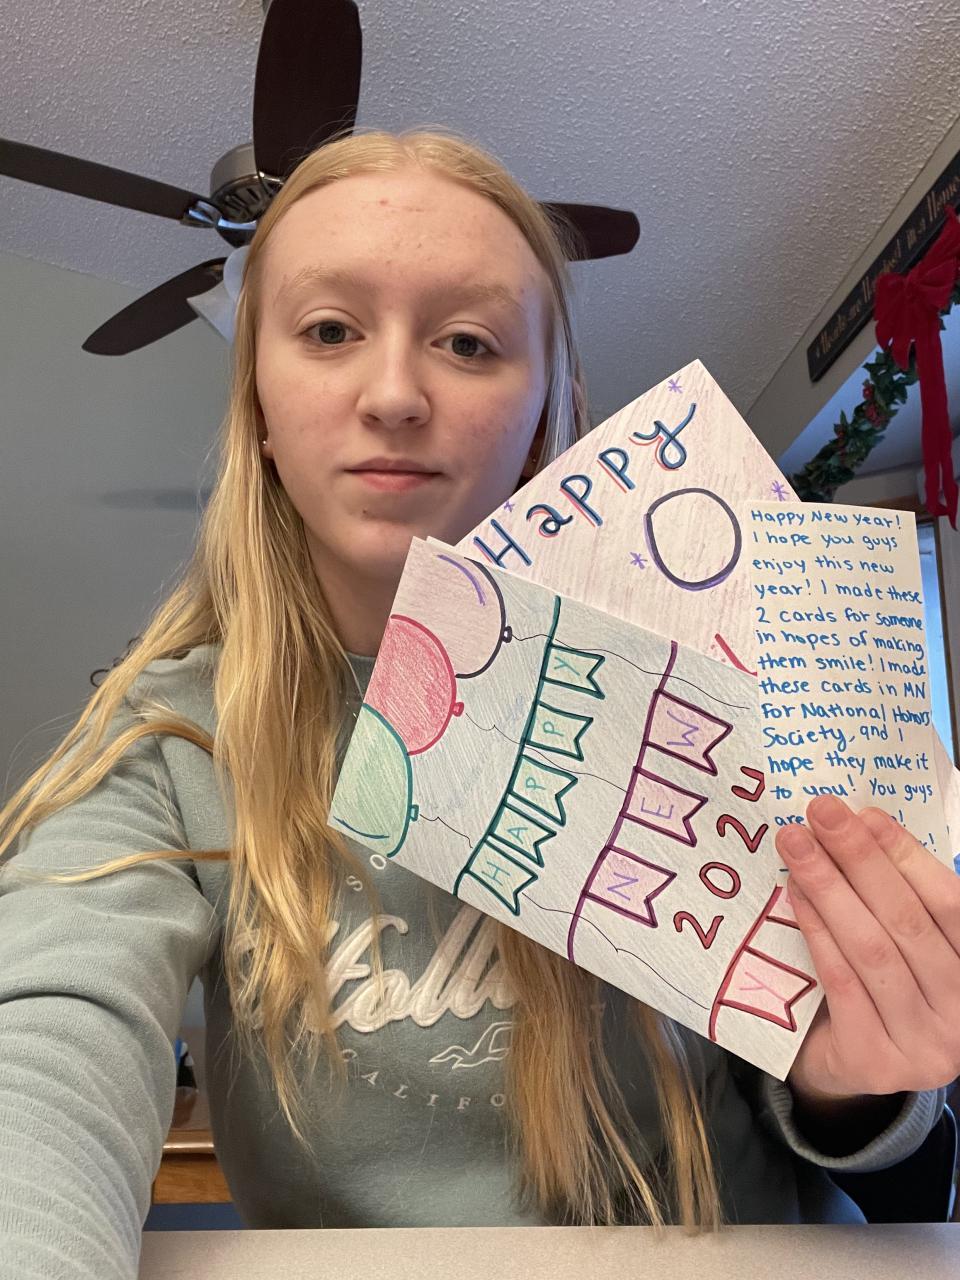 Happy
Happy New Year!
I hope you guys
enjoy this new
year! I made these
2 cards for someone
in hopes of making
them smile! I made
these cards in MN
for National Honors
Society, and I
hope they make it
to you! You guys
are
HAPPY
NEW
2024
Y
SO
Holli
CALIFO